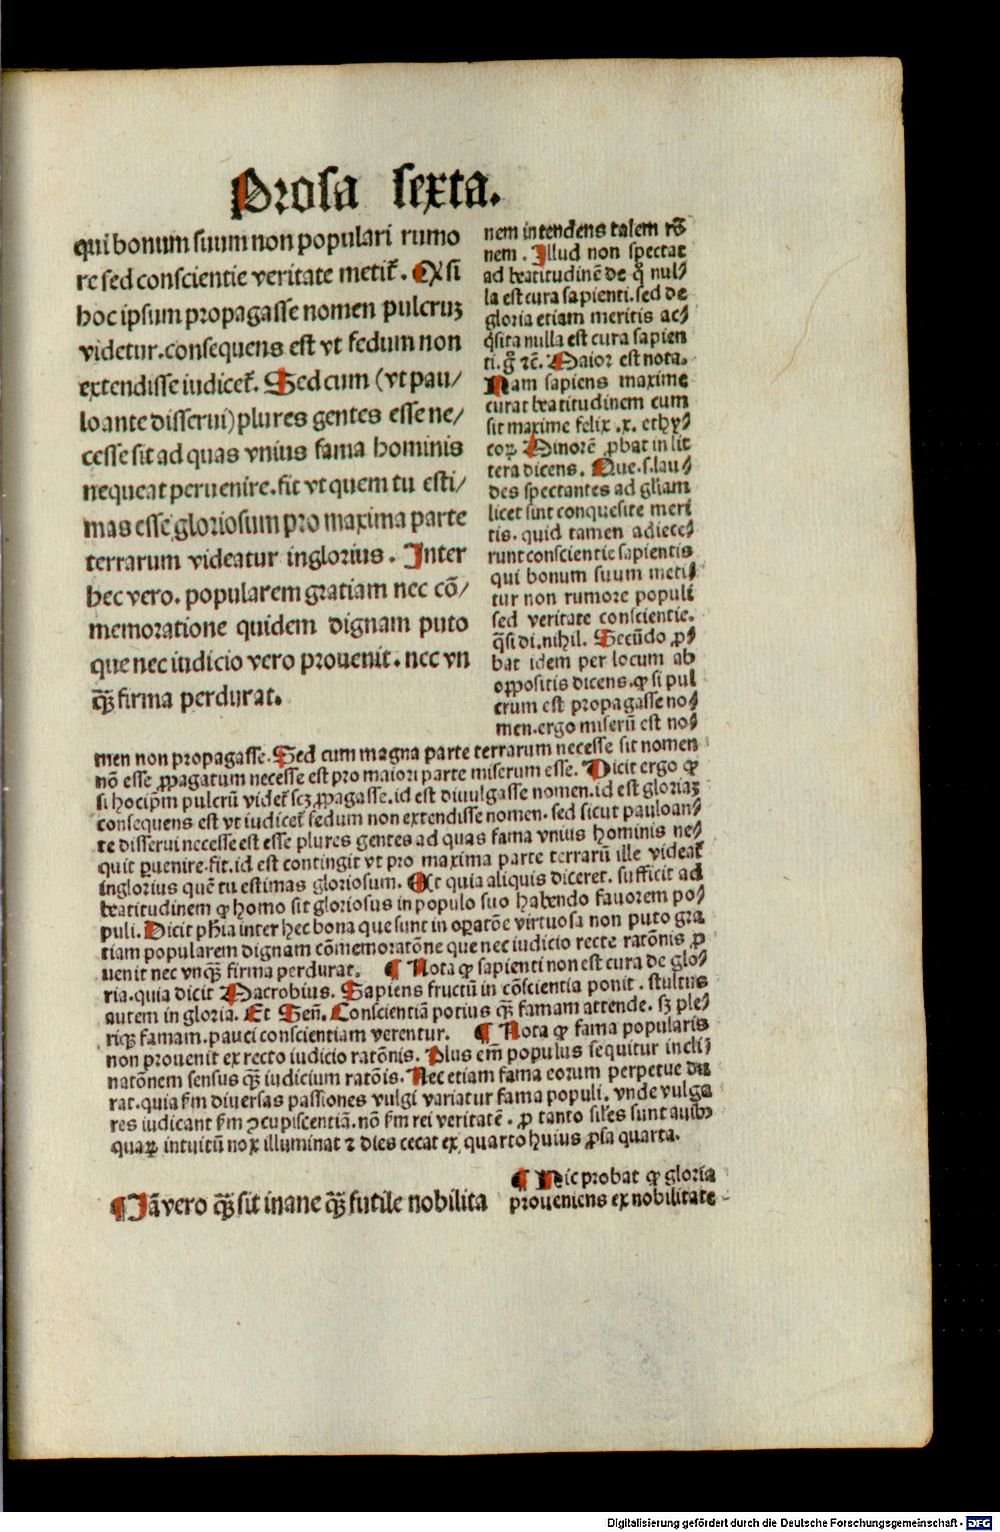 Prosa sexta.
qui bonum suum non populari rumo
re sed conscientie veritate metit᷑. Q si
hoc ipsum propagasse nomen pulcruꝫ
videtur. consequens est vt fedum non
extendisse iudicet᷑. Sed cum (vt pau/
lo ante disserui) plures gentes esse ne/
cesse sit ad quas vnius fama hominis
nequeat peruenire. fit vt quem tu esti/
mas esse gloriosum pro maxima parte
terrarum videatur inglorius. Inter
hec vero. popularem gratiam nec cō/
memoratione quidem dignam puto
que nec iudicio vero prouenit. nec vn
qᷓꝫ firma perdurat.
nem intendens talem rō
nem. Illud non spectat
ad beatitudinē de q̊ nul/
la est cura sapienti. sed de
gloria etiam meritis ac/
q̄sita nulla est cura sapien
ti. g̊ ⁊c̄. Maior est nota.
Nam sapiens maxime
curat beatitudinem cum
sit maxime felix .x. ethy/
coꝝ Minorē ꝓbat in lit
tera dicens. Que .s. lau/
des spectantes ad gl̄iam
licet sint conquesite meri
tis. quid tamen adiece/
runt conscientie sapientis
qui bonum suum meti/
tur non rumore populi
sed veritate conscientie.
q̄si di. nihil. Secūdo ꝓ/
bat idem per locum ab
oppositis dicens. ꝙ si pul
crum est propagasse no/
men. ergo miserū est no/
men non propagasse. Sed cum magna parte terrarum necesse sit nomen
nō esse ꝓpagatum necesse est pro maiori parte miserum esse. Dicit ergo ꝙ
si hoc ip̄m pulcrū videt᷑ scꝫ ꝓpagasse. id est diuulgasse nomen. id est gloriaꝫ
consequens est vt iudicet᷑ fedum non extendisse nomen. sed sicut paulo an/
te disserui necesse est esse plures gentes ad quas fama vnius hominis ne/
quit ꝑuenire. fit. id est contingit vt pro maxima parte terrarū ille videat᷑
inglorius quē tu estimas gloriosum. Et quia aliquis diceret. sufficit ad
beatitudinem ꝙ homo sit gloriosus in populo suo habendo fauorem po/
puli. Dicit ph̄ia inter hec bona que sunt in oꝑatōe virtuosa non puto gra
tiam popularem dignam cōmemoratōne que nec iudicio recte ratōnis ꝓ
uenit nec vnqᷓꝫ firma perdurat. ¶ Nota ꝙ sapienti non est cura de glo/
ria. quia dicit Macrobius. Sapiens fructū in cōscientia ponit. stultus
autem in gloria. Et Señ. Conscientiā potius qᷓꝫ famam attende. sꝫ ple/
riqꝫ famam. pauci conscientiam verentur. ¶ Nota ꝙ fama popularis
non prouenit ex recto iudicio ratōnis. Plus em̄ populus sequitur incli/
natōnem sensus qᷓꝫ iudicium ratōis. Nec etiam fama eorum perpetue du
rat. quia s̄m diuersas passiones vulgi variatur fama populi. vnde vulga
res iudicant s̄m ꝯcupiscentiā. nō s̄m rei veritatē. ꝓ tanto sil̄es sunt auibꝰ
quaꝝ intuitū nox illuminat ⁊ dies cecat ex quarto huius ꝓsa quarta.
¶ Iā vero qᷓꝫ sit inane qᷓꝫ futile nobilita
¶ Hic probat ꝙ gloria
proueniens ex nobilitate
Digitalisierung gefördert durch die Deutsche Forschungsgemeinschaft - DFG